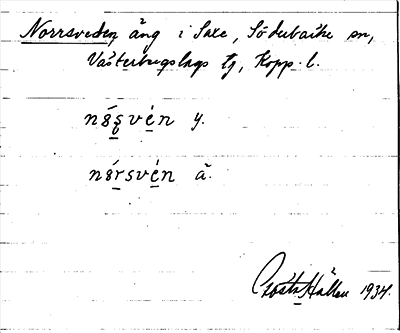 Norrsveden äng i Saxe, Söderbärke sn,
Västerbergslags tg, Kopp. l.
nósvén y.
nórsvén ä.
Gösta Hallén 1934.